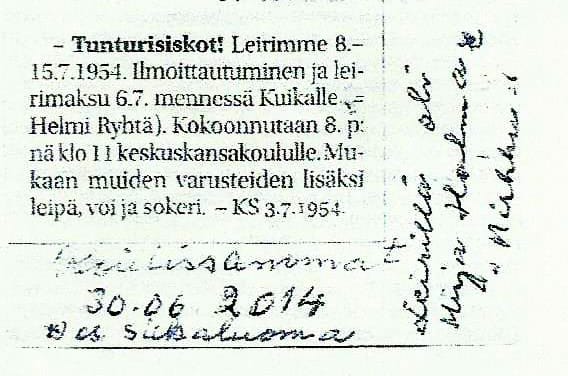 – Tunturisiskot! Leirimme 8.–
15.7.1954. Ilmoittautuminen ja lei-
rimaksu 6.7. mennessä Kuikalle. =
Helmi Ryhtä). Kokoonnutaan 8. p:
nä klo 11 keskuskansakoululle. Mu-
kaan muiden varusteiden lisäksi
leipä, voi ja sokeri. – KS 3.7.1954.
30.06 2014
Leirillä oli